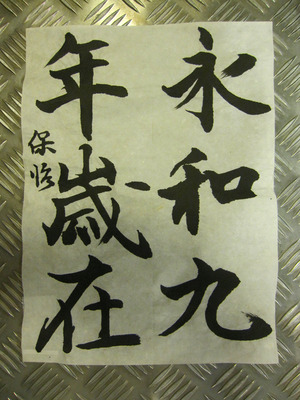 永和九
年歳在
保臨